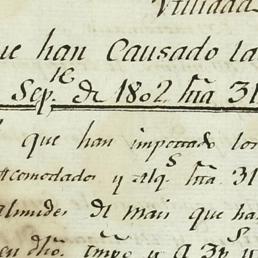 Utilidad
que han Causado la
Sep.re de 1802 hta 31
que han importado los
Acomodados y alq.s hta 31
almudes de mais que ha
en dho. tmpo y a 3 p.s